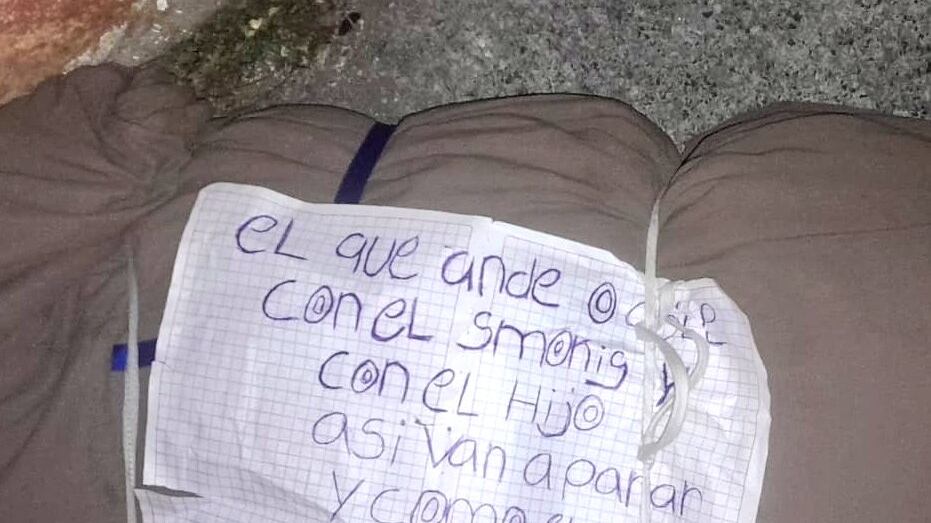 eL que ande o
con eL smonig y
con eL Hijo
asi van a parar
y como